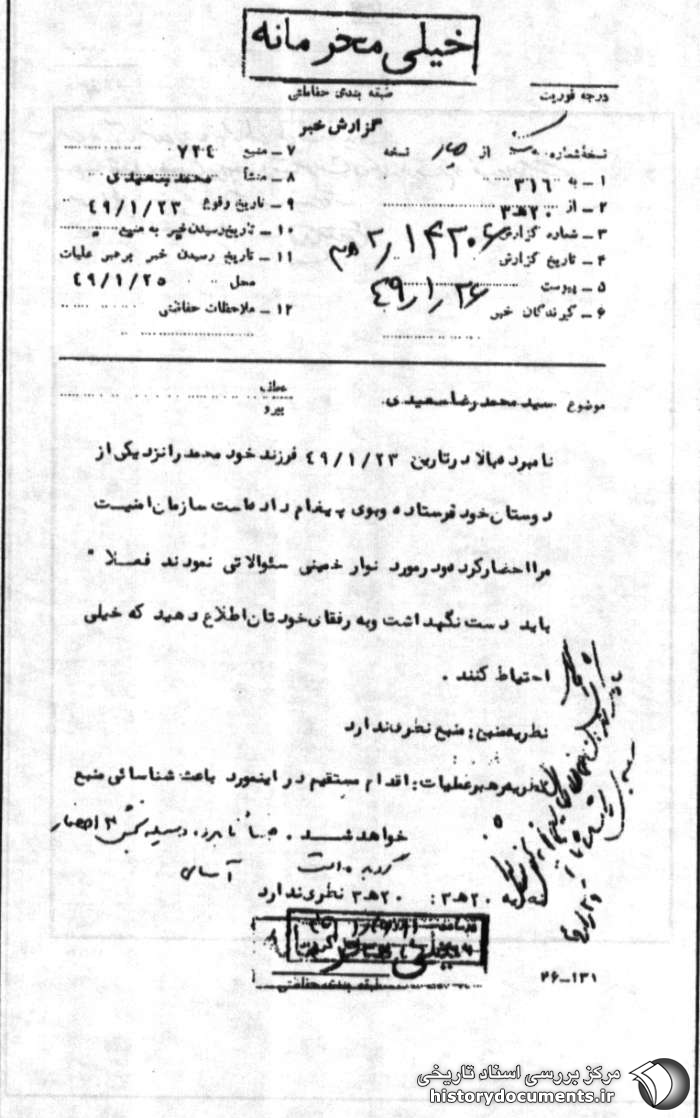 خیلی محرمانه
طبقه بندی حفاظتی
درجه فوریت
گزارش خبر
نسخهٔ شماره از چهار نسخه
۱ - به ۳۱۶
۲ - از ۲۰ﻫ۳
۳ - شماره گزارش
۴ - تاریخ گزارش ۴۹/۱/۲۶
۵ - پیوست
۶ - گیرندگان خبر
۷ - منبع ۷۲۴
۸ - منشأ محمد سعیدی
۹ - تاریخ وقوع ۴۹/۱/۲۳
۱۰ - تاریخ رسیدن خبر به منبع
۱۱ - تاریخ رسیدن خبر برهبر عملیات
محل ۴۹/۱/۲۵
۱۲ - ملاحظات حفاظتی
موضوع سید محمدرضا سعیدی
عطف
پیرو
نامبرده بالا در تاریخ ۴۹/۱/۲۳ فرزند خود محمد را نزد یکی از
دوستان خود فرستاده و بوی پیغام داده است سازمان امنیت
مرا احضار کرده و در مورد نوار خمینی سئوالاتی نمودند فعلا "
باید دست نگهداشت و به رفقای خودتان اطلاع دهید که خیلی
احتیاط کنند .
نظریه منبع : منبع نظری ندارد
نظریه رهبر عملیات : اقدام مستقیم در اینمورد باعث شناسائی منبع
خواهد شد .
نظریه ۲۰ﻫ۳ : ۲۰ﻫ۳ نظری ندارد
طبقه بندی حفاظتی
۴۶-۱۳۱
مرکز بررسی اسناد تاریخی
historydocuments.ir